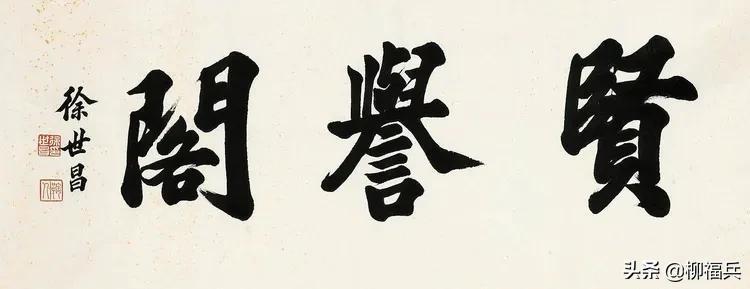 賢譽閣
徐世昌
头条 @柳福兵